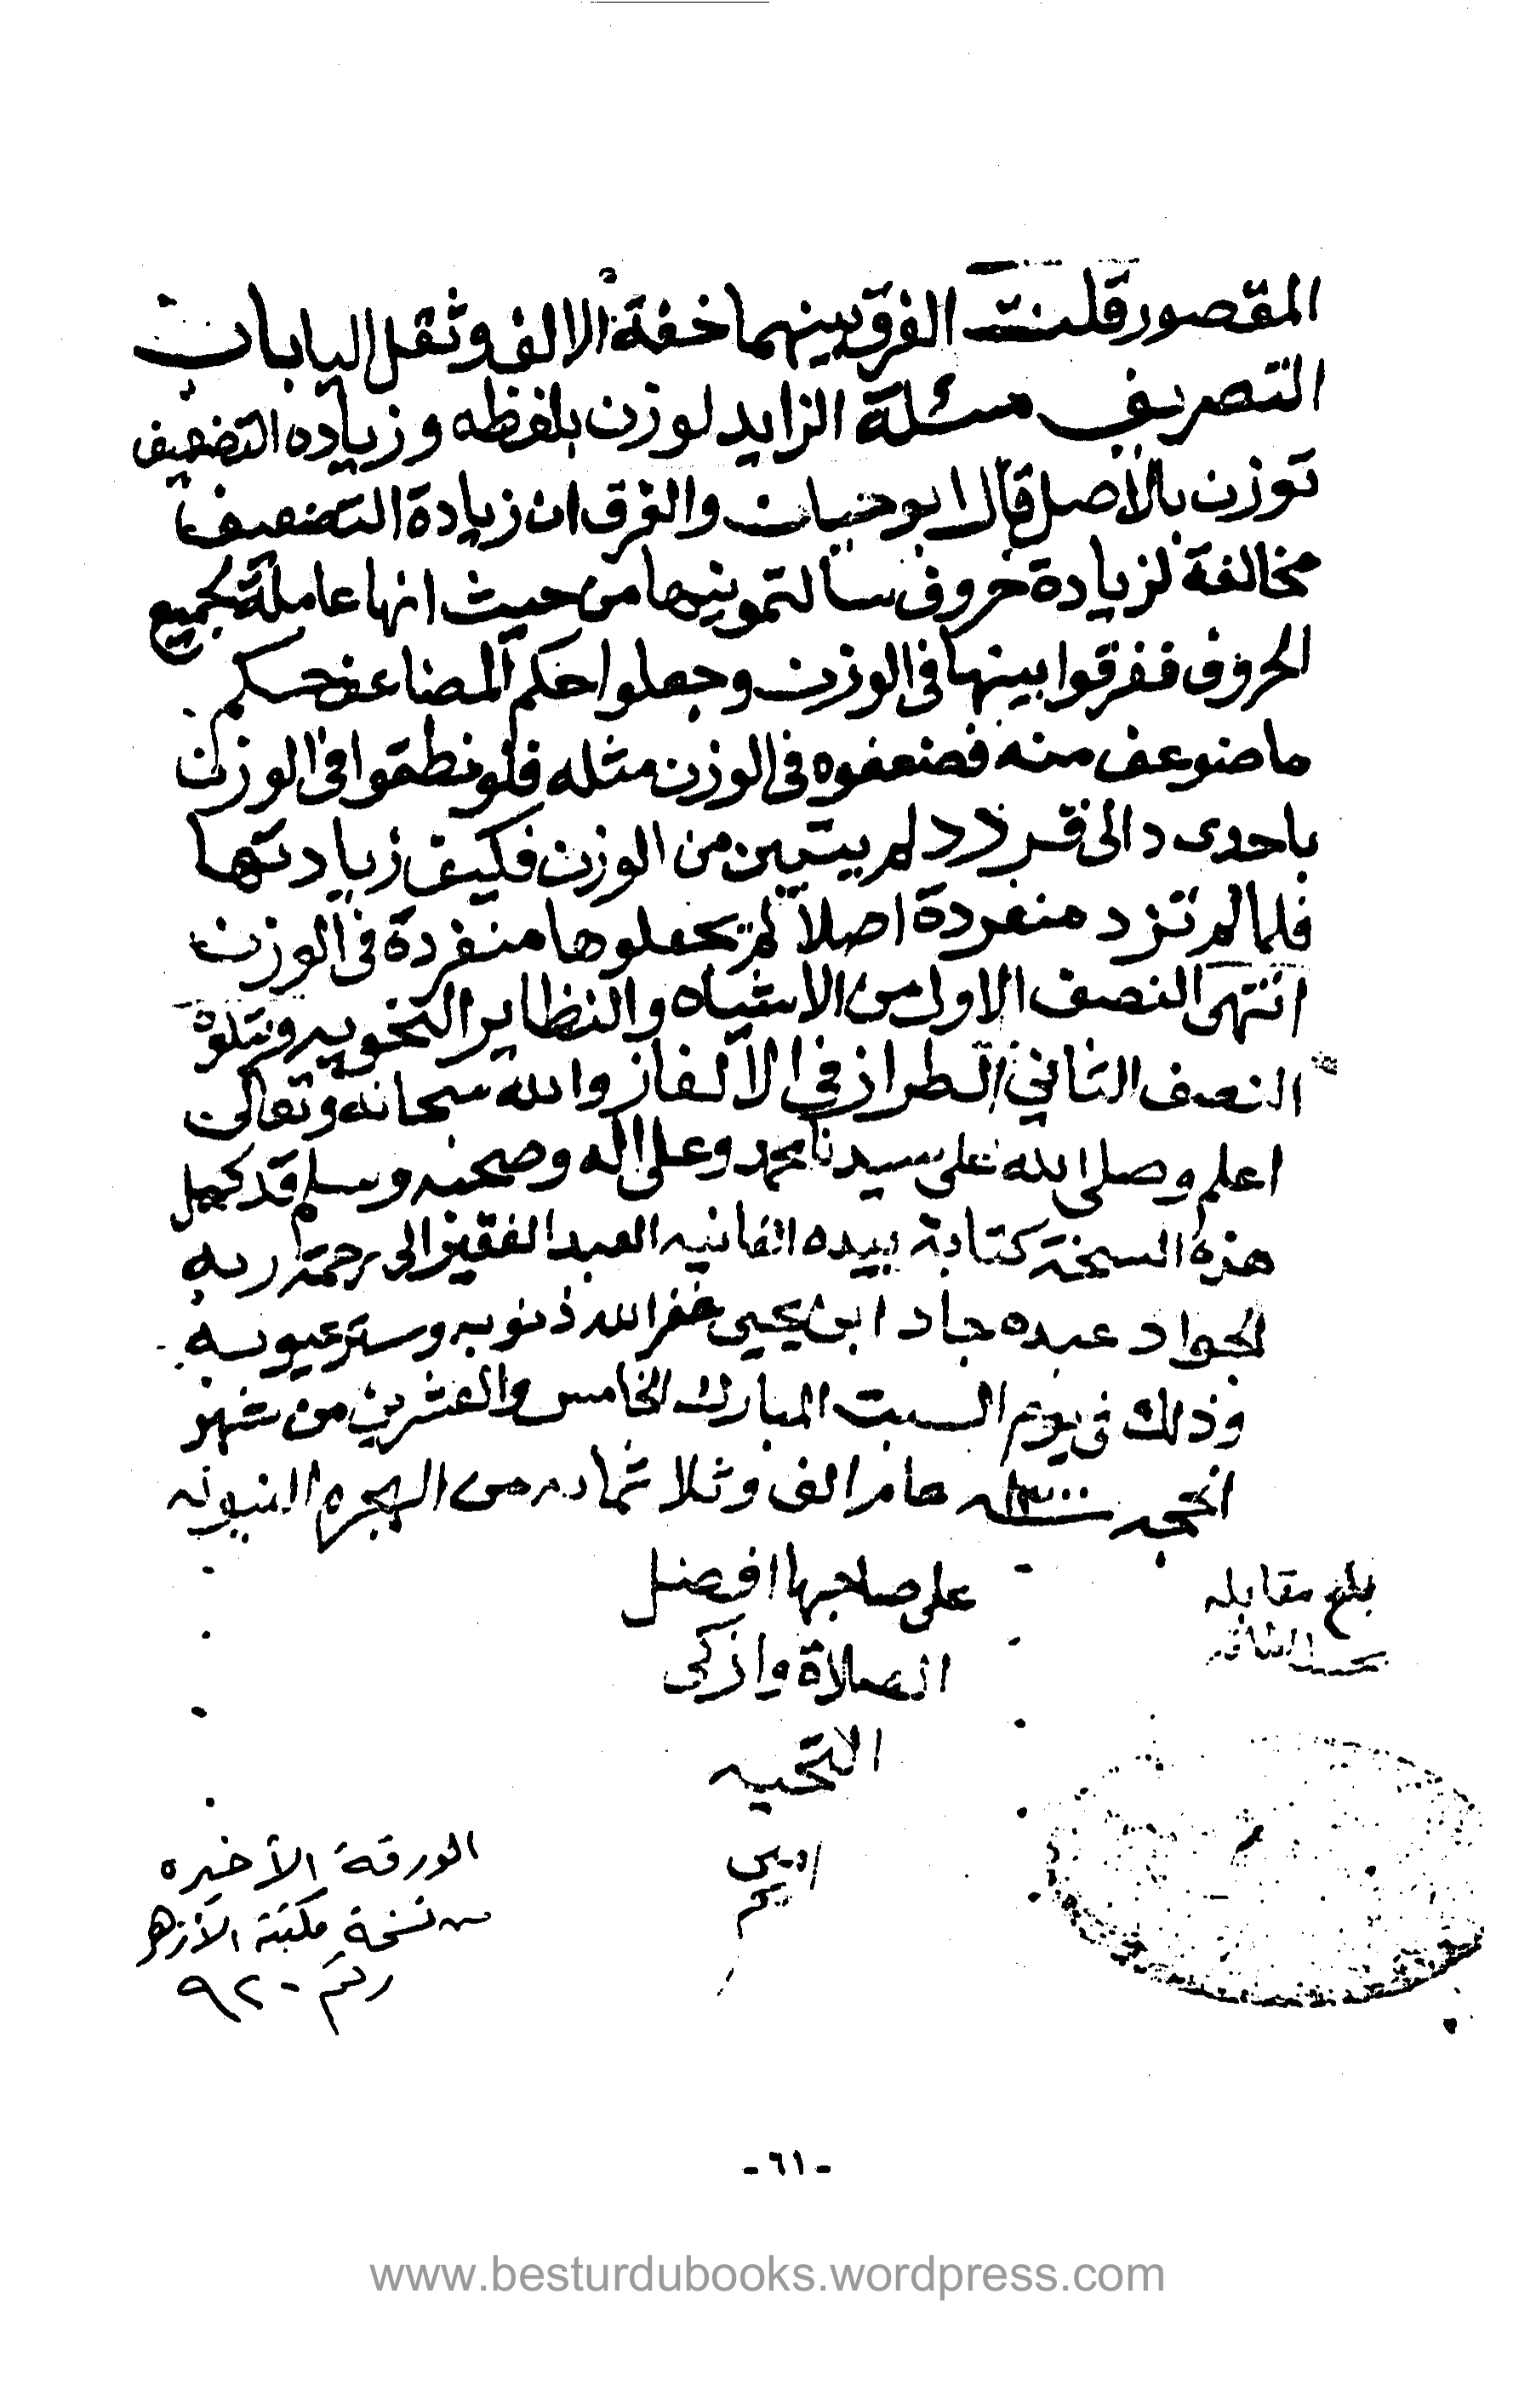 المقصور قلت الفرق بينهما خفة الالف وثقل اليا باب
التصريف مسئلة الزايد لوزن بلفظه وزياده التضعيف
توزن بالاصل قال ابو حيان والفرق ان زيادة التضعيف
مخالفة لزيادة حروف سالتمونيها من حيث انها عاملة لجميع
الحروف ففرقوا بينها في الوزن وجعلوا حكم المضاعف حكم
ما ضوعف منه فضعفوه في الوزن مثله فلو نطقوا في الوزن
باحدى دالى قردد لم يتبين من الوزن فكيف زيادتها
فلما لم تزد منفردة اصلا لم يجعلوها منفردة في الوزن
انتهى النصف الاول من الاشباه والنظاير النحويه ويتلوه
النصف الثاني الطراز في الالغاز والله سبحانه وتعالى
اعلم وصلى الله على سيدنا محمد وعلى اله وصحبه وسلم قد كمل
هذه النسخة كتابة بيده الفانيه العبد الفقير الى رحمة ربه
الجواد عبده جاد ابن يحيى غفر الله ذنوبه وستر عيوبه
وذلك في يوم السبت المبارك الخامس والعشرين من شهر
الحجه ١٣٠٠ عام الف وثلاثمايه من الهجره النبويه
على صاحبها افضل
الصلاة وازكى
التحيه
بلغ مقابله
الورقة الأخيره
من نسخة مكتبة الأزهر
رقم ٩٢٠
- ٦١ -
www.besturdubooks.wordpress.com